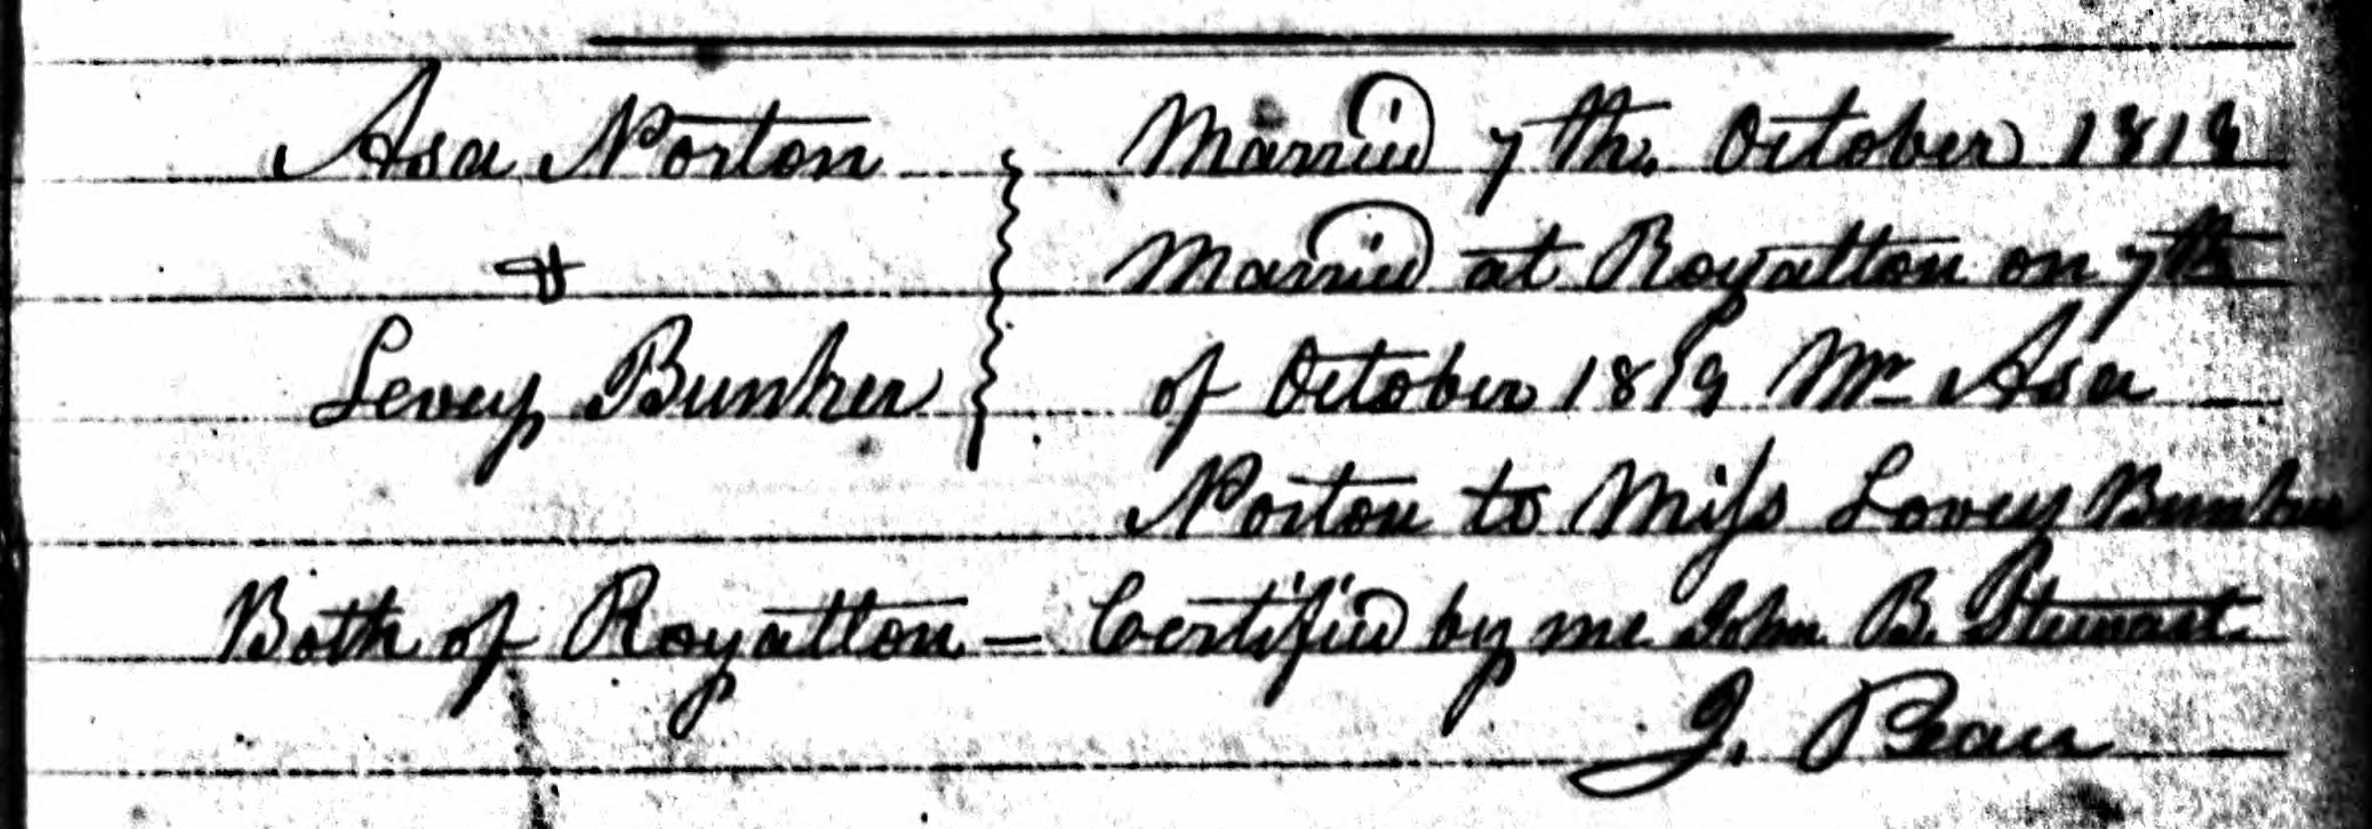 Asa Norton Married 7th. October 1818
& Married at Royalton on 7th
Levey Bunker of October 1819 Mr Asa
Norton to Miss Lovey Bunker
Both of Royalton — Certified by me John B. Stewart.
J. Bean